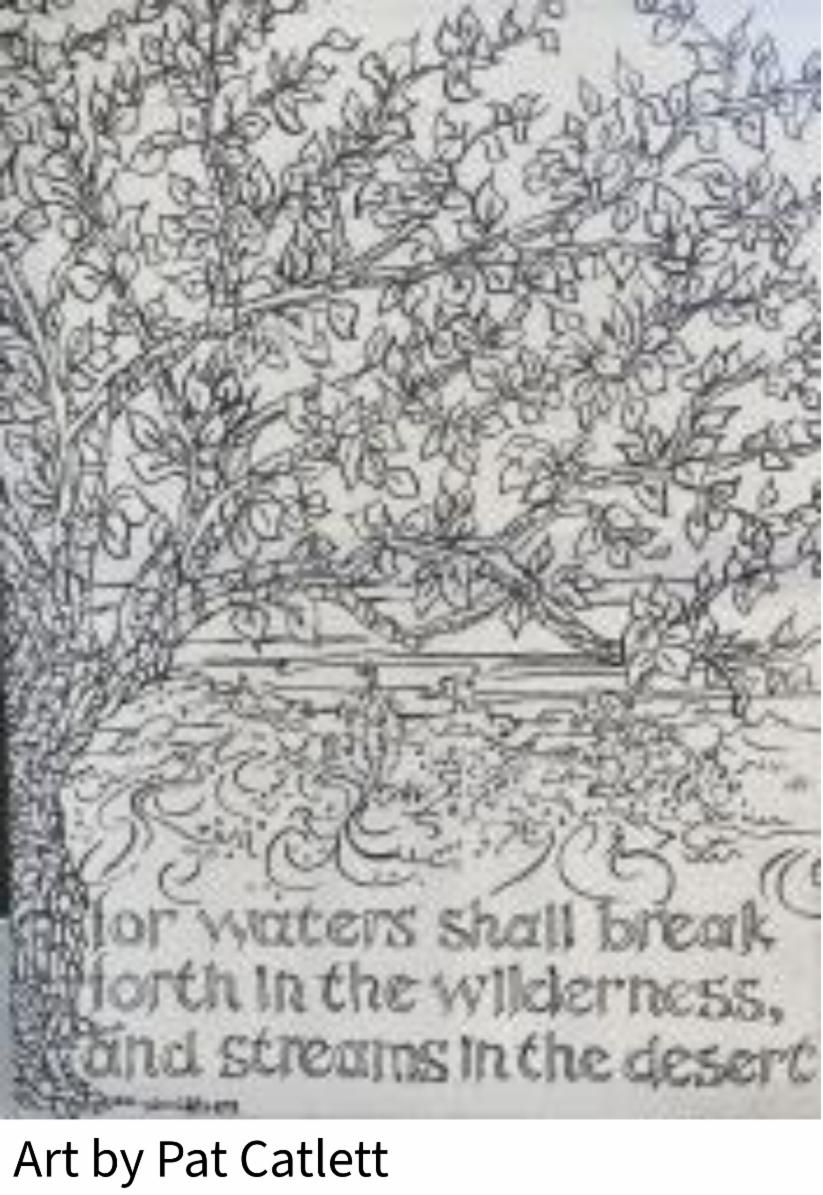 for waters shall break
forth in the wilderness,
and streams in the desert
Art by Pat Catlett